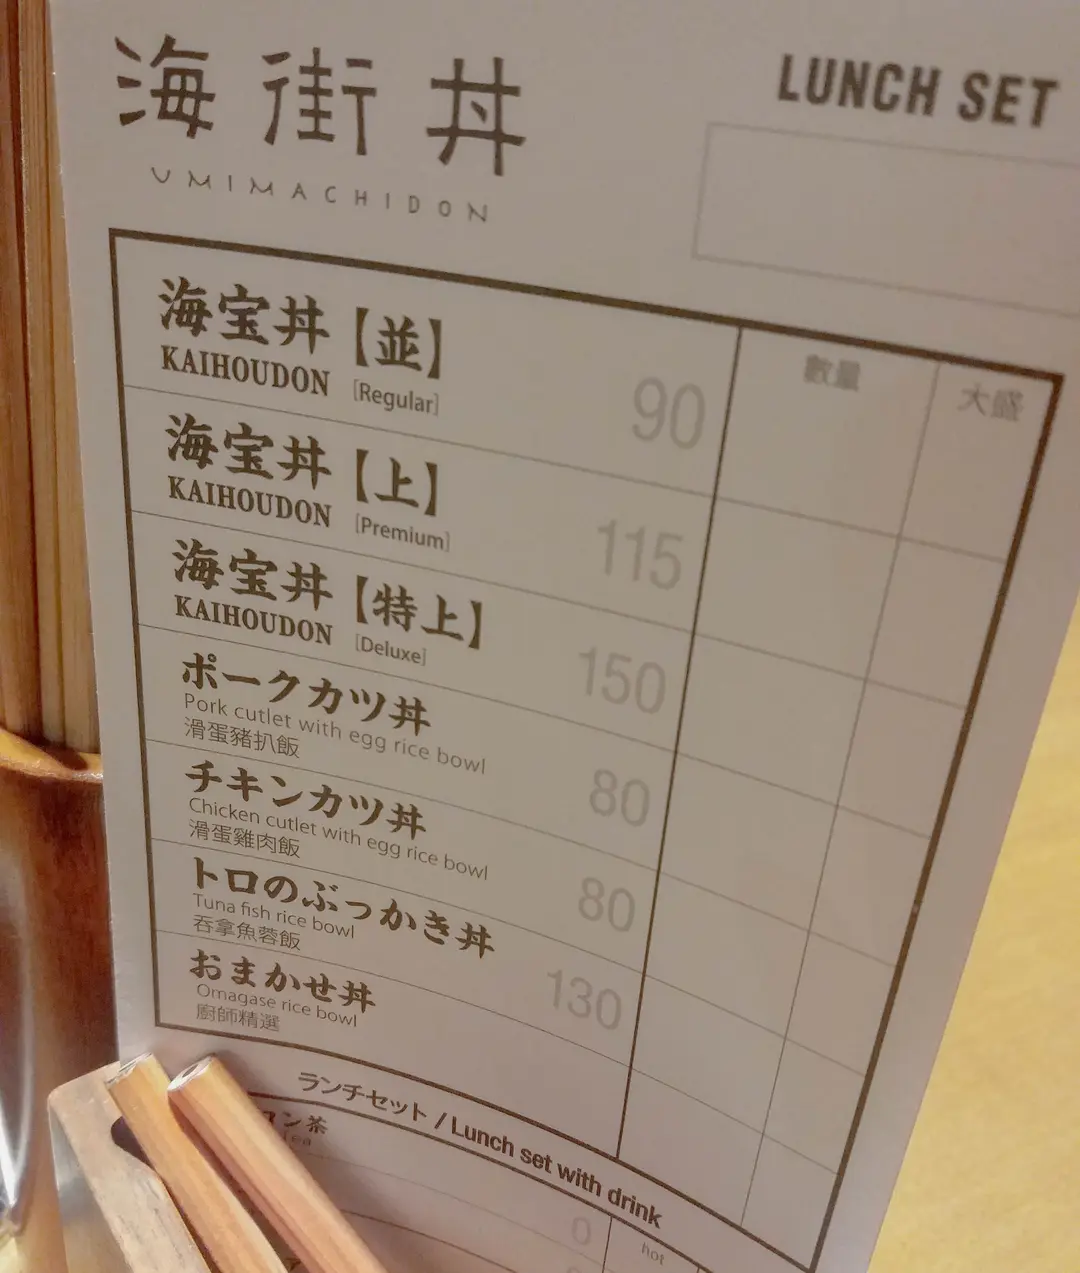 海街丼
UMIMACHIDON
LUNCH SET
数量
大盛
海宝丼【並】
KAIHOUDON [Regular]
90
海宝丼【上】
KAIHOUDON [Premium]
115
海宝丼【特上】
KAIHOUDON [Deluxe]
150
ポークカツ丼
Pork cutlet with egg rice bowl
滑蛋豬扒飯
80
チキンカツ丼
Chicken cutlet with egg rice bowl
滑蛋雞肉飯
80
トロのぶっかき丼
Tuna fish rice bowl
吞拿魚蓉飯
130
おまかせ丼
Omagase rice bowl
廚師精選
ランチセット / Lunch set with drink
ン茶
tea
0
hot